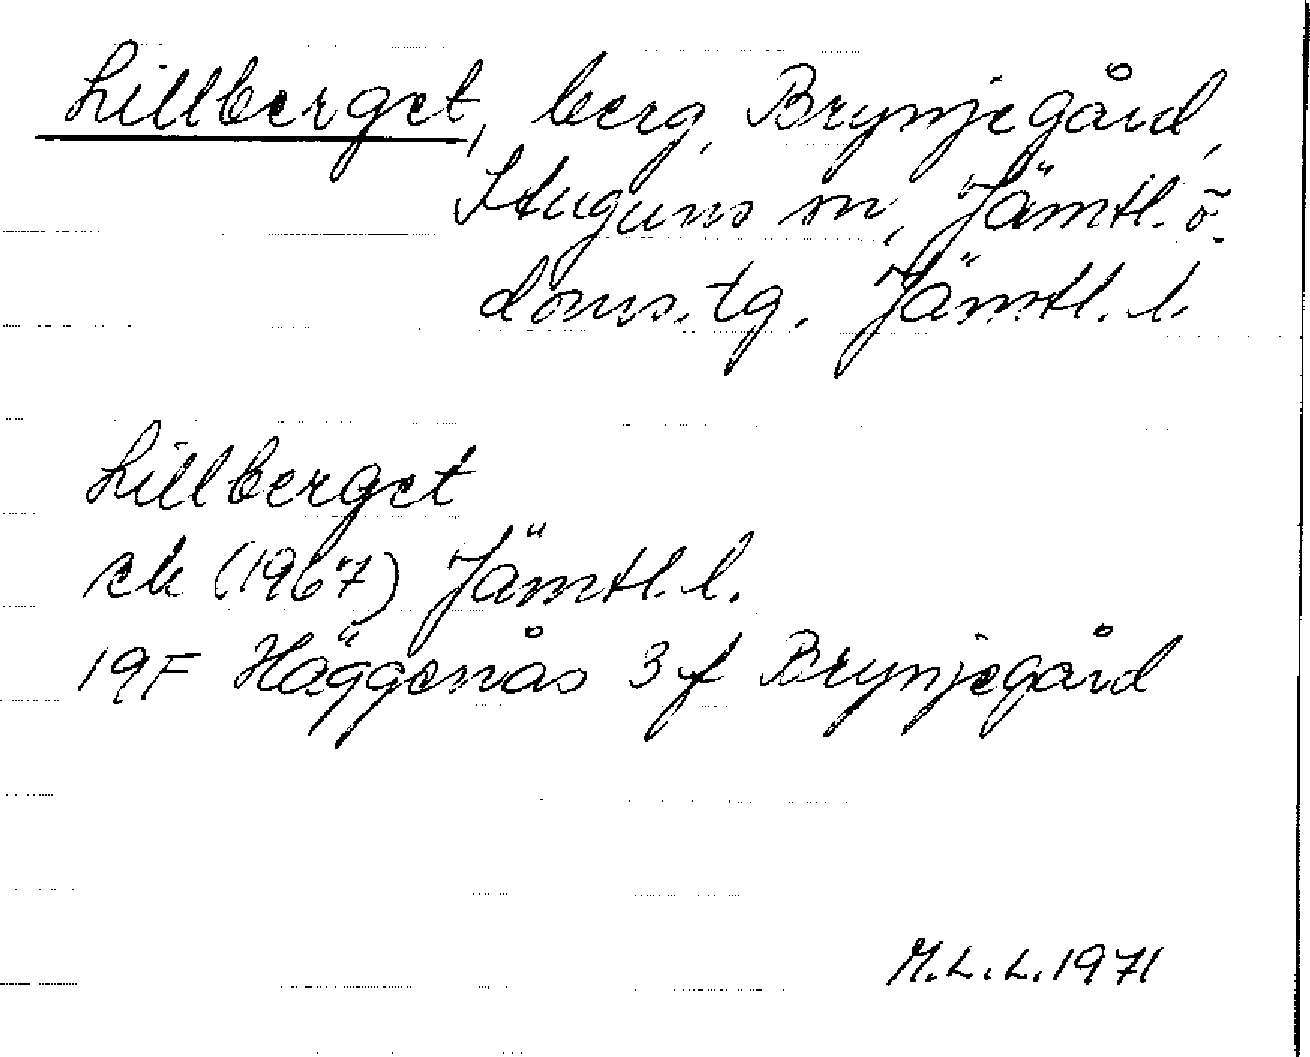 Lillberget, berg, Brynjegård,
Stuguns sn, Jämtl. ö.
doms. tg. Jämtl. l.
Lillberget
ek (1967) Jämtl. l.
19F Häggenås 3f Brynjegård
M.L.L. 1971